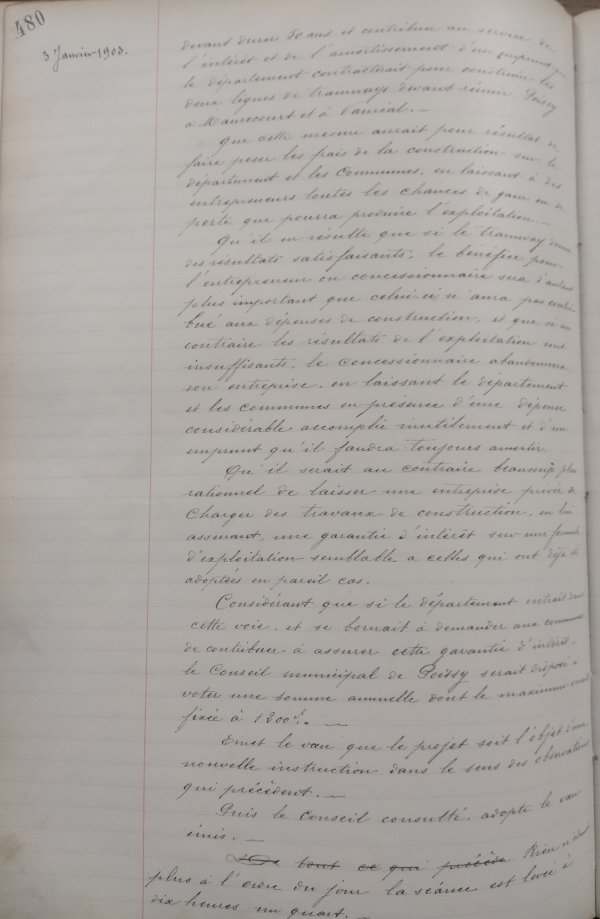 480
3 Janvier 1903.
devant durer 50 ans et contribuer au service de
l'intérêt et de l'amortissement d'un emprunt que
le département contracterait pour construire les
deux lignes de tramways devant réunir Poissy
à Maurecourt et à Vauréal. —
Que cette mesure aurait pour résultat de
faire peser les frais de la construction sur le
département et les Communes, en laissant à des
entrepreneurs toutes les chances de gain ou de
perte que pourra produire l'exploitation. —
Qu'il en résulte que si le tramway donne
des résultats satisfaisants, le bénéfice pour
l'entrepreneur ou concessionnaire sera d'autant
plus important que celui-ci n'aura pas contri-
bué aux dépenses de construction, et que si au
contraire les résultats de l'exploitation sont
insuffisants, le concessionnaire abandonnera
son entreprise, en laissant le département
et les communes en présence d'une dépense
considérable accomplie inutilement et d'un
emprunt qu'il faudra toujours amortir.
Qu'il serait au contraire beaucoup plus
rationnel de laisser une entreprise privée se
charger des travaux de construction, en lui
assurant, une garantie d'intérêt sur une formule
d'exploitation semblable a celles qui ont déjà été
adoptées en pareil cas.
Considérant que si le département entrait dans
cette voie, et se bornait à demander aux communes
de contribuer à assurer cette garantie d'intérêt,
le Conseil municipal de Poissy serait disposé à
voter une somme annuelle dont le maximum serait
fixée à 1200f. —
Emet le vœu que le projet soit l'objet d'une
nouvelle instruction dans le sens des observations
qui précèdent. —
Puis le Conseil consulté, adopte le vœu
émis. —
tout ce qui précède. Rien n'étant
plus à l'ordre du jour la séance est levée à
dix heures un quart. —